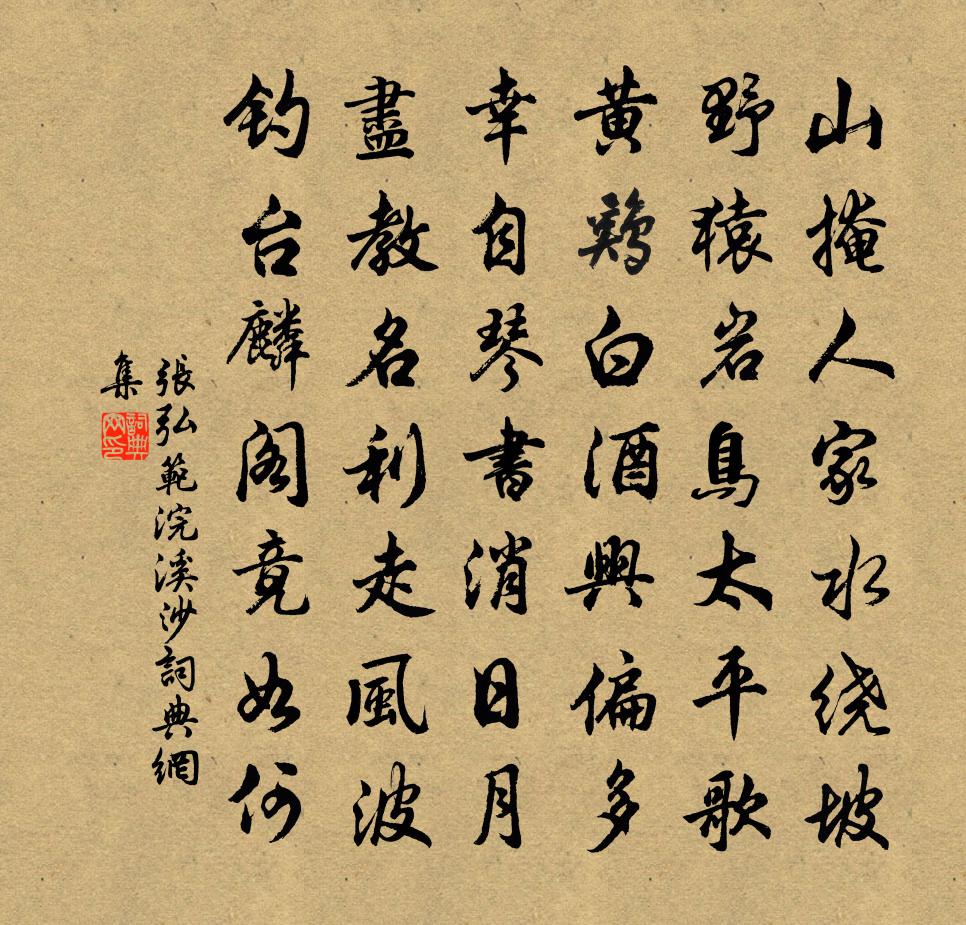 山掩人家水绕坡
野猿岩鳥太平歌
黄鷄白酒興偏多
幸自琴書消日月
盡教名利走風波
钓台麟阁竟如何
張弘範浣溪沙詞典網
集
詞典網印